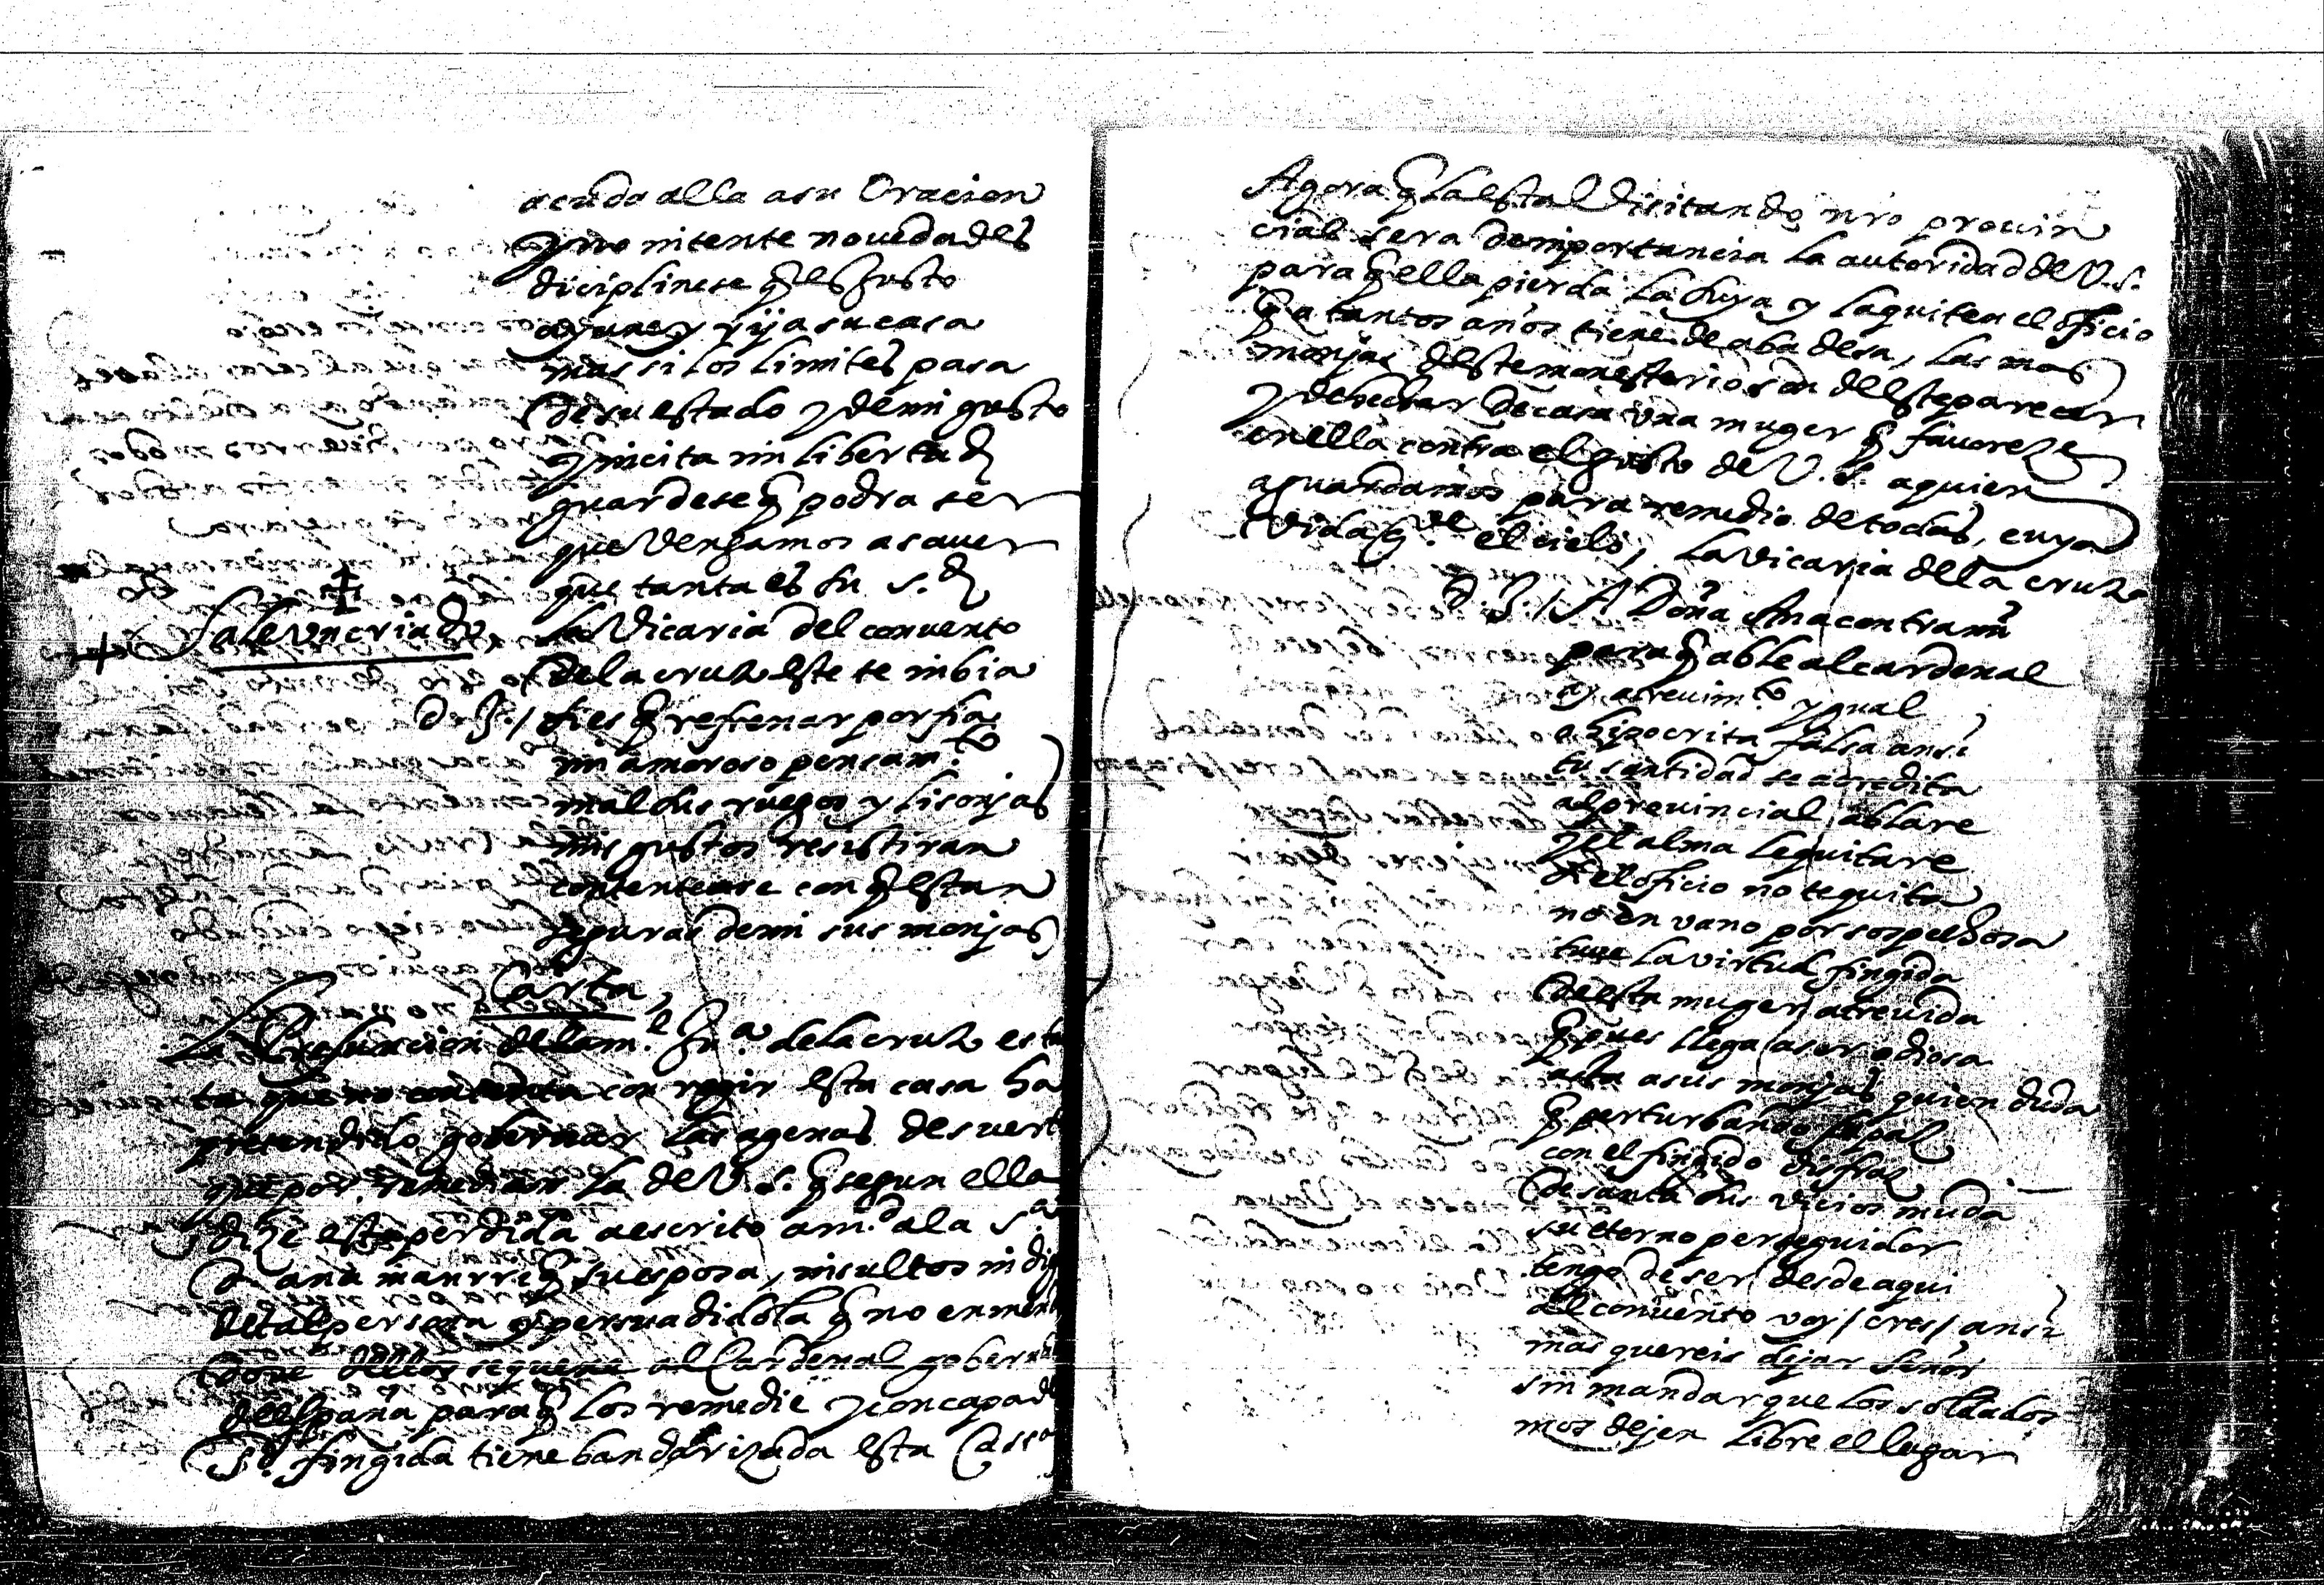 acuda alla a su Oracion
y no intente nouedades
diciplinese q̃ es justo
ayune y rija su casa
mas si los limites pasa
de su estado y de mi gusto
y incita mi libertad
guardese q̃ podra ser
que vengamos a sauer
que tanta es su s.d
Sale vn criado
la Vicaria del conuento
de la cruz este te inbia
d J./ si es q̃ refrenar porfia
mi amoroso pensam.to
mal sus ruegos y lisonjas
mis gustos resistiran
contentense con q̃ estan
seguras de mi sus monjas
Carta
La Presuncion de la m.e Ju.a de la cruz es ta
ta que no contenta con regir esta casa ha
pretendido gobernar las agenas de suert
que por remediar la de V. S. q̃ segun ella
dize esta perdida a escrito a mi d.a la S.a
d ana manrriq̃ su esposa, insultos indig
de tal persona y persuadidola q̃ no enmend
dose dellos se quexe al Cardenal gobern
de españa para q̃ los remedie y con capa de
S.d fingida tiene bandarizada esta Cassa
Agora q̃ la esta Visitando nr̃o prouin
cial sera de inportancia la autoridad de V. S.
para q̃ ella pierda la suya y la quiten el oficio
q̃ a tantos años tiene de abadesa, las mas
monjas deste monesterio son deste parecer
y desechar de casa vna muger q̃ fauoreze
en ella contra el gusto de V. S. a quien
aguardamos para remedio de todas, cuya
Vida g.de el cielo, la Vicaria de la cruz
d J./ A Doña Ana contra mi
para q̃ able al cardenal
ay atreuim.to ygual
a hipocrita falsa ansi
tu santidad se acredita
al prouincial ablare
y el alma le quitare
si el oficio no te quita
no en vano por sospechosa
tuue la virtud fingida
de esta muger atreuida
q̃ pues llega a ser odiosa
asta a sus monjas quien duda
q̃ perturbando su paz
con el fingido disfraz
de santa sus vicios muda
su eterno perseguidor
tengo de ser desde aqui
al conuento voy / cres / ansi
mos quereis dejar Señor
sin mandar que los soldados
mos dejen libre el lugar